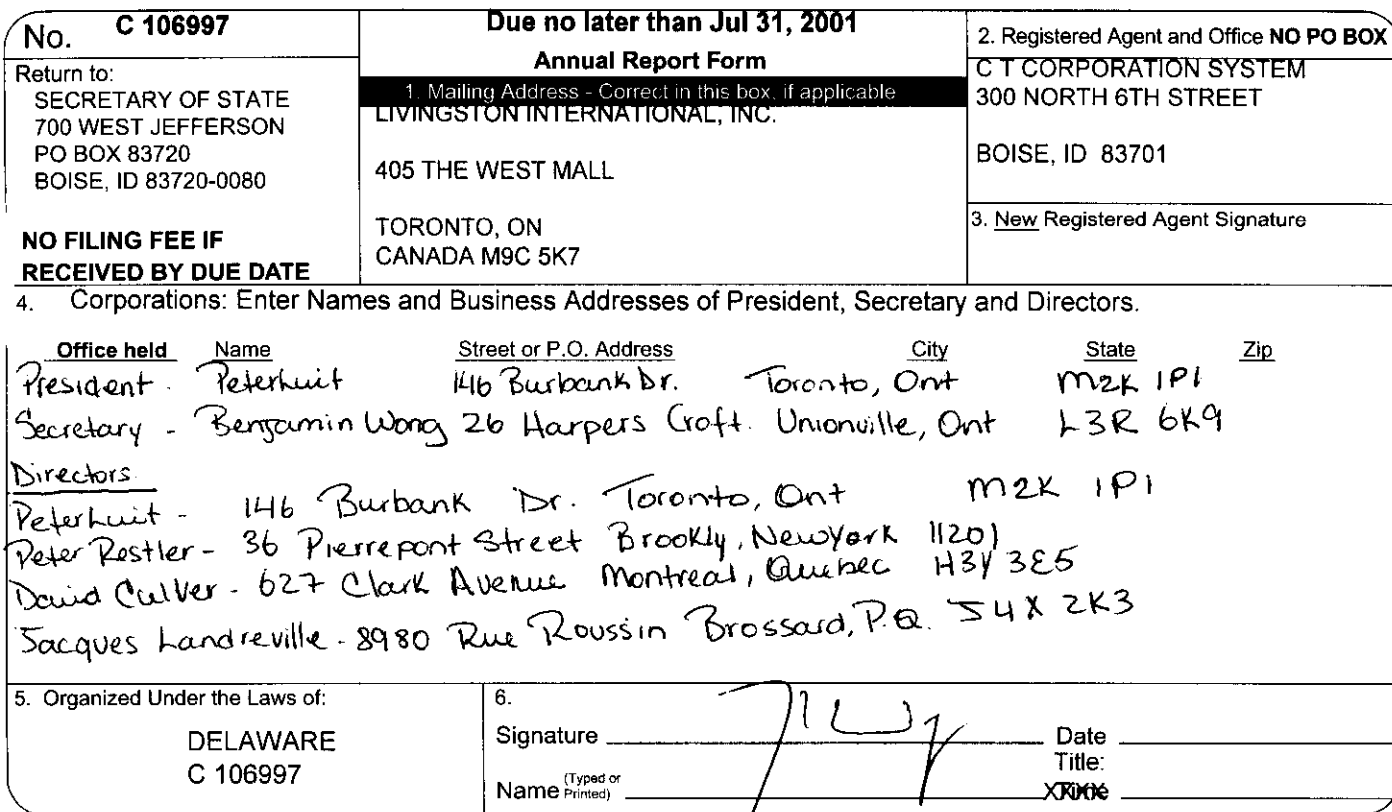 No. C 106997
Return to:
SECRETARY OF STATE
700 WEST JEFFERSON
PO BOX 83720
BOISE, ID 83720-0080
NO FILING FEE IF
RECEIVED BY DUE DATE
Due no later than Jul 31, 2001
Annual Report Form
1. Mailing Address - Correct in this box, if applicable
LIVINGSTON INTERNATIONAL, INC.
405 THE WEST MALL
TORONTO, ON
CANADA M9C 5K7
2. Registered Agent and Office NO PO BOX
C T CORPORATION SYSTEM
300 NORTH 6TH STREET
BOISE, ID 83701
3. New Registered Agent Signature
4. Corporations: Enter Names and Business Addresses of President, Secretary and Directors.
Office held Name Street or P.O. Address City State Zip
President - Peter Luit 146 Burbank Dr. Toronto, Ont M2K 1P1
Secretary - Benjamin Wong 26 Harpers Croft. Unionville, Ont L3R 6K9
Directors
Peter Luit - 146 Burbank Dr. Toronto, Ont M2K 1P1
Peter Restler - 36 Pierrepont Street Brookly, New York 11201
David Culver - 627 Clark Avenue Montreal, Quebec H3Y 3E5
Jacques Landreville - 8980 Rue Roussin Brossard, P.Q. J4X 2K3
5. Organized Under the Laws of:
DELAWARE
C 106997
6.
Signature Date
Title:
Name (Typed or Printed)